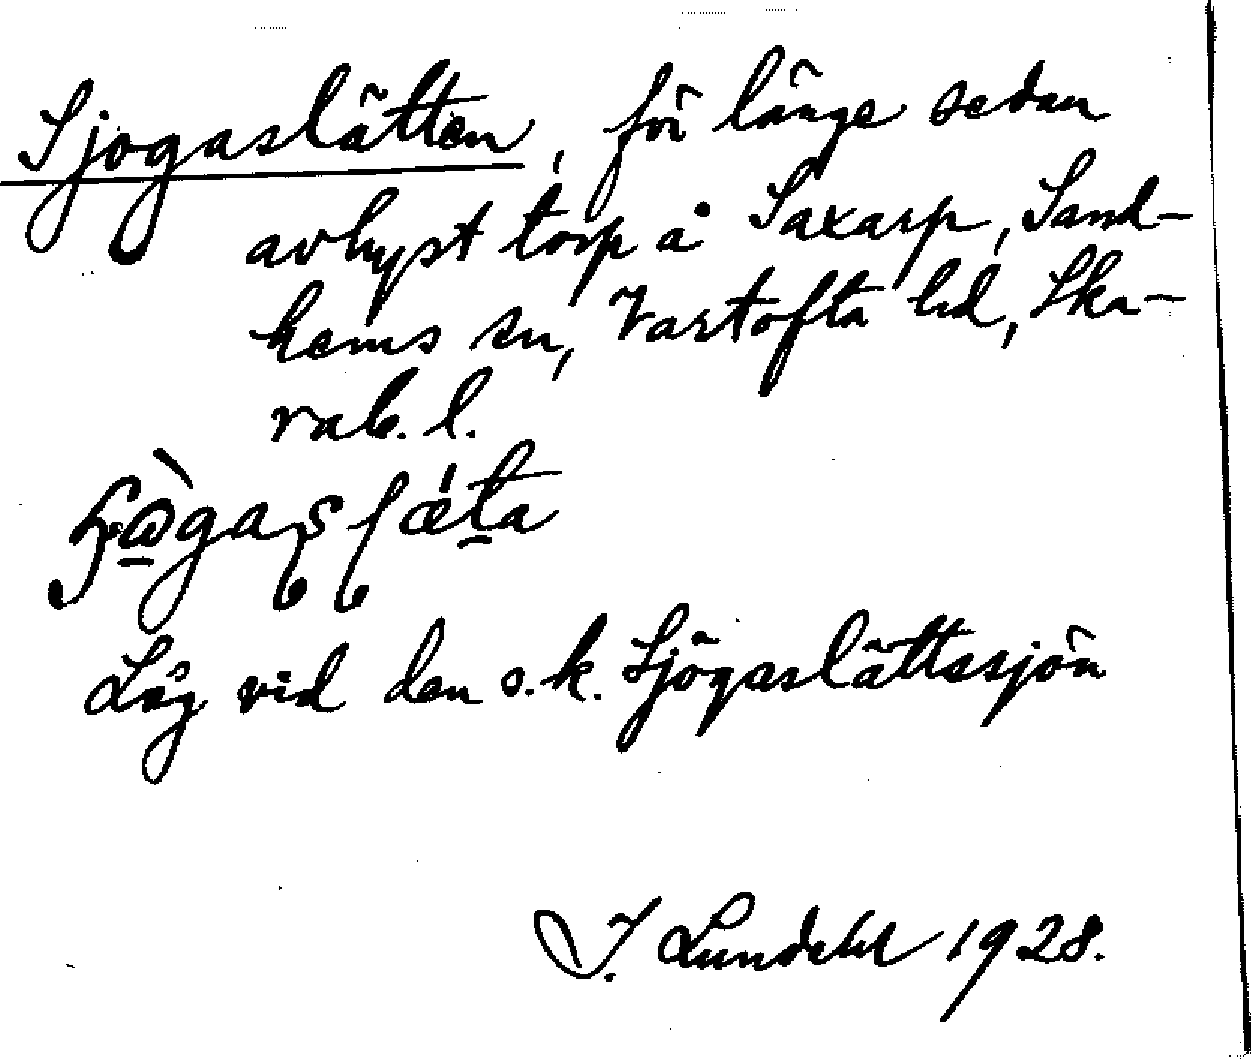 Sjogaslätten, för länge sedan
avhyst torp å Saxarp, Sand-
hems sn, Vartofta hd, Ska-
rab. l.
Låg vid den s.k. Sjögaslättssjön
J. Lundahl 1928.